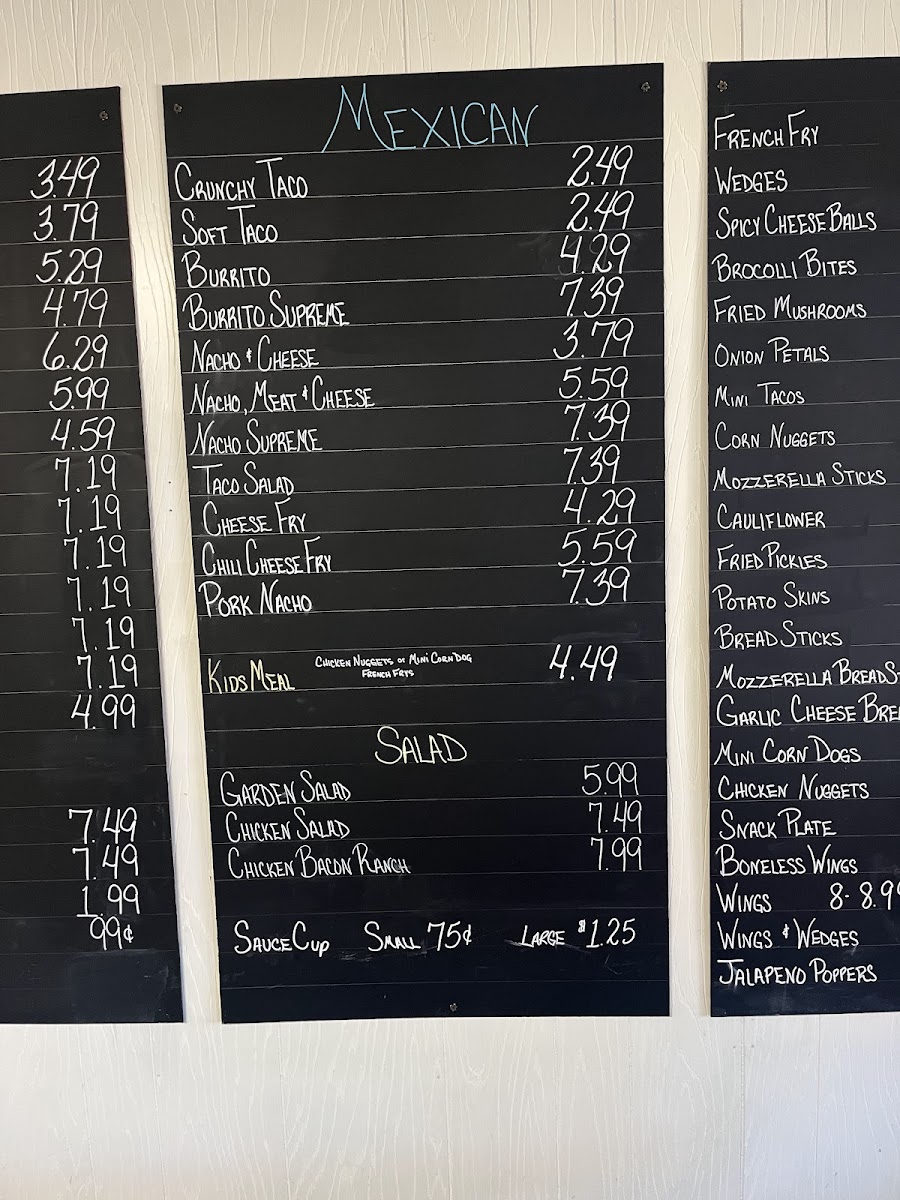 3.49
3.79
5.29
4.79
6.29
5.99
4.59
7.19
7.19
7.19
7.19
7.19
7.19
4.99
7.49
7.49
1.99
99¢
MEXICAN
CRUNCHY TACO 2.49
SOFT TACO 2.49
BURRITO 4.29
BURRITO SUPREME 7.39
NACHO & CHEESE 3.79
NACHO, MEAT & CHEESE 5.59
NACHO SUPREME 7.39
TACO SALAD 7.39
CHEESE FRY 4.29
CHILI CHEESE FRY 5.59
PORK NACHO 7.39
KIDS MEAL CHICKEN NUGGETS or MINI CORN DOG 4.49
FRENCH FRYS
SALAD
GARDEN SALAD 5.99
CHICKEN SALAD 7.49
CHICKEN BACON RANCH 7.99
SAUCE CUP SMALL 75¢ LARGE $1.25
FRENCH FRY
WEDGES
SPICY CHEESE BALLS
BROCOLLI BITES
FRIED MUSHROOMS
ONION PETALS
MINI TACOS
CORN NUGGETS
MOZZERELLA STICKS
CAULIFLOWER
FRIED PICKLES
POTATO SKINS
BREAD STICKS
MOZZERELLA BREAD
GARLIC CHEESE
MINI CORN DOGS
CHICKEN NUGGETS
SNACK PLATE
BONELESS WINGS
WINGS 8- 8.99
WINGS & WEDGES
JALAPENO POPPERS